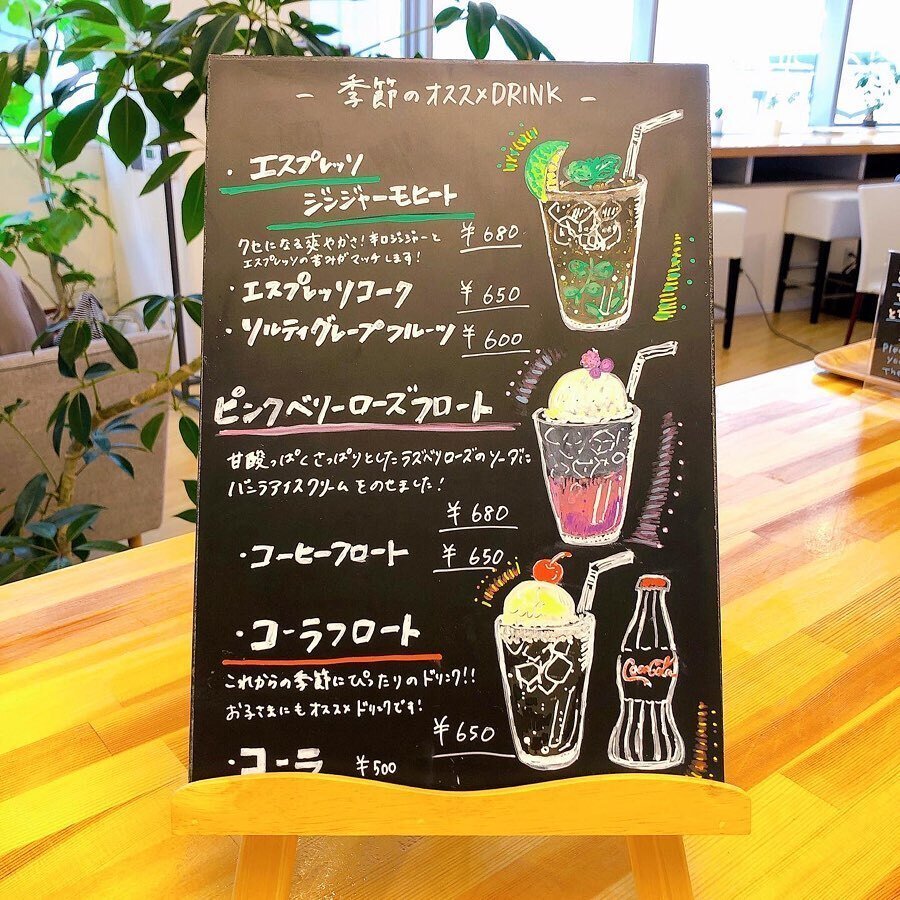 - 季節のオススメDRINK -
・エスプレッソ
ジンジャーモヒート
¥680
クセになる爽やかさ!辛口ジンジャーと
エスプレッソの苦みがマッチします!
・エスプレッソコーク ¥650
・ソルティグレープフルーツ ¥600
ピンクベリーローズフロート
甘酸っぱくさっぱりとしたラズベリローズのソーダに
バニラアイスクリームをのせました!
¥680
・コーヒーフロート ¥650
・コーラフロート
これからの季節にぴったりのドリンク!!
お子さまにもオススメドリンクです!
¥650
・コーラ ¥500
Coca-Cola